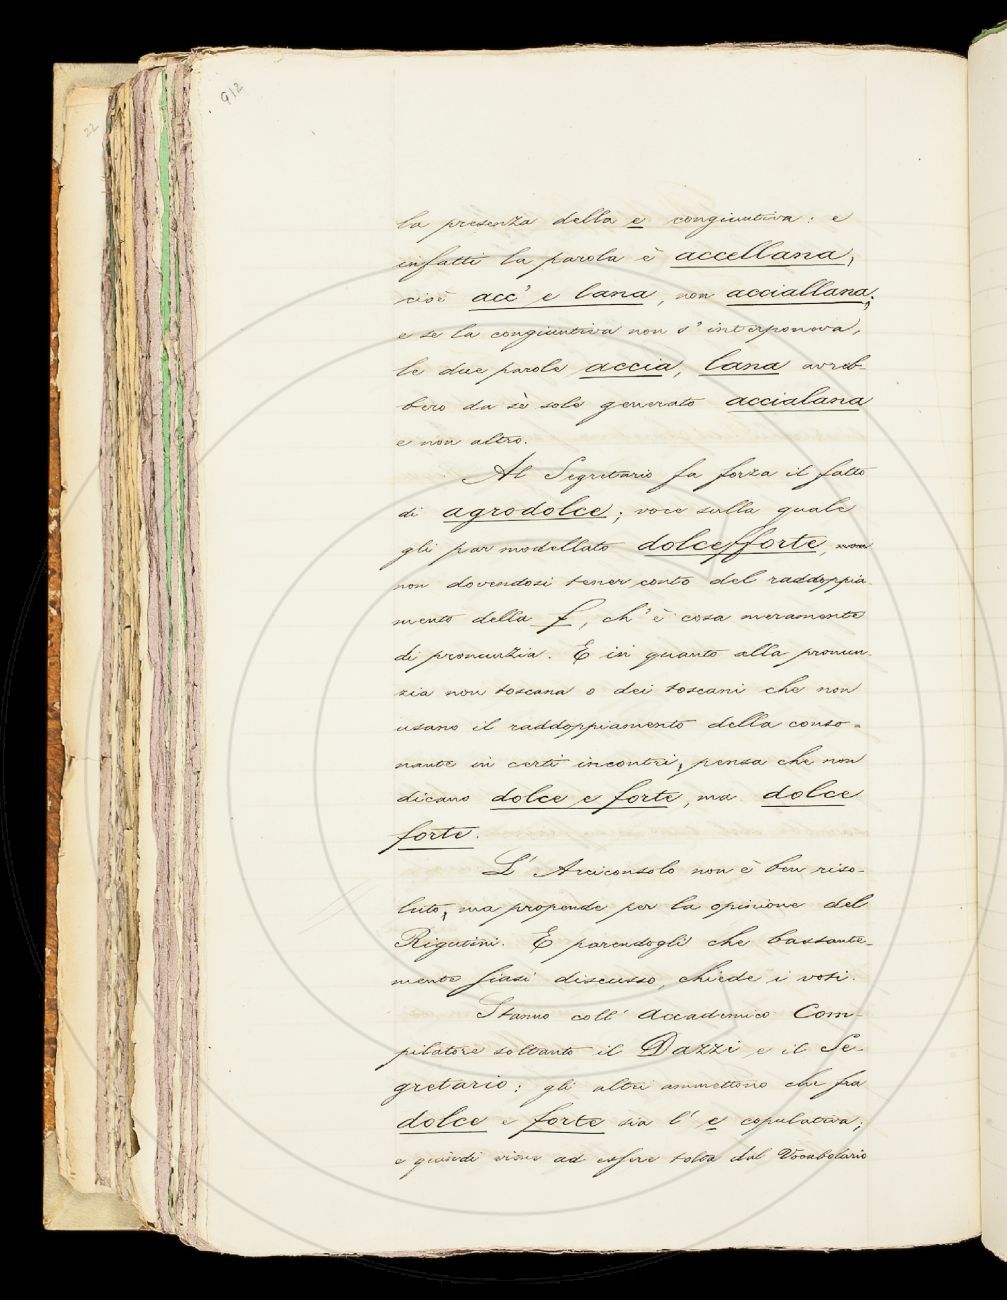 912
22
la presenza della e congiuntiva: e
infatti la parola è accellana,
cioè acc' e lana, non acciallana;
e se la congiuntiva non s'interponeva,
le due parole accia, lana avreb-
bero da sè sole generato accialana
e non altro.
Al Segretario fa forza il fatto
di agrodolce; voce sulla quale
gli par modellato dolcefforte, non
non dovendosi tener conto del raddoppia-
mento della f, ch'è cosa meramente
di pronunzia. E in quanto alla pronun-
zia non toscana o dei toscani che non
usano il raddoppiamento della conso-
nante in certi incontri, pensa che non
dicano dolce e forte, ma dolce
forte.
L'Arciconsolo non è ben riso-
luto, ma propende per la opinione del
Rigutini. E parendogli che bastante-
mente siasi discusso, chiede i voti.
Stanno coll'Accademico Com-
pilatore soltanto il Dazzi e il Se-
gretario: gli altri ammettono che fra
dolce e forte sia l'e copulativa;
e quindi viene ad essere tolta dal Vocabolario